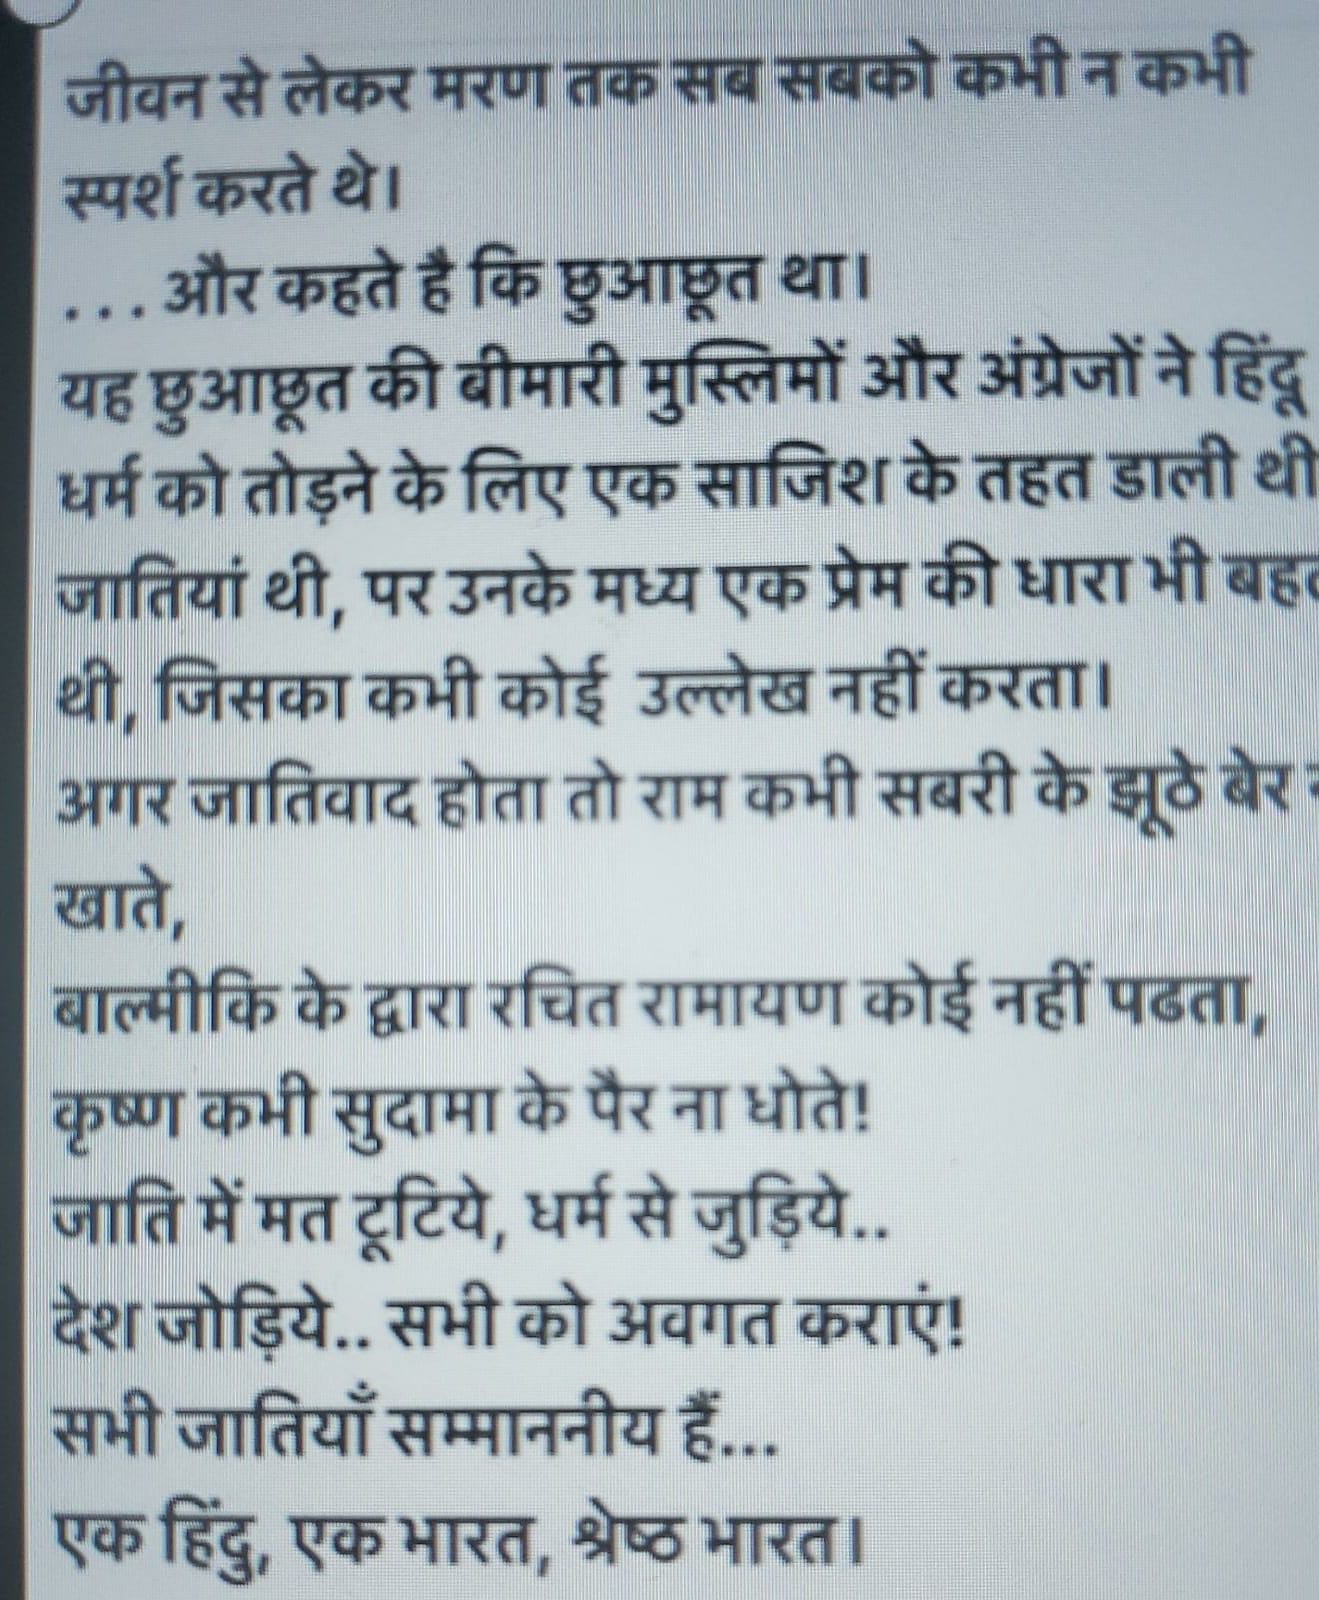 जीवन से लेकर मरण तक सब सबको कभी न कभी
स्पर्श करते थे।
. . . और कहते है कि छुआछूत था।
यह छुआछूत की बीमारी मुस्लिमों और अंग्रेजों ने हिंदू
धर्म को तोड़ने के लिए एक साजिश के तहत डाली थी
जातियां थी, पर उनके मध्य एक प्रेम की धारा भी
थी, जिसका कभी कोई उल्लेख नहीं करता।
अगर जातिवाद होता तो राम कभी सबरी के झूठे बेर
खाते,
बाल्मीकि के द्वारा रचित रामायण कोई नहीं पढता,
कृष्ण कभी सुदामा के पैर ना धोते!
जाति में मत टूटिये, धर्म से जुड़िये..
देश जोड़िये.. सभी को अवगत कराएं!
सभी जातियाँ सम्माननीय हैं...
एक हिंदु, एक भारत, श्रेष्ठ भारत।